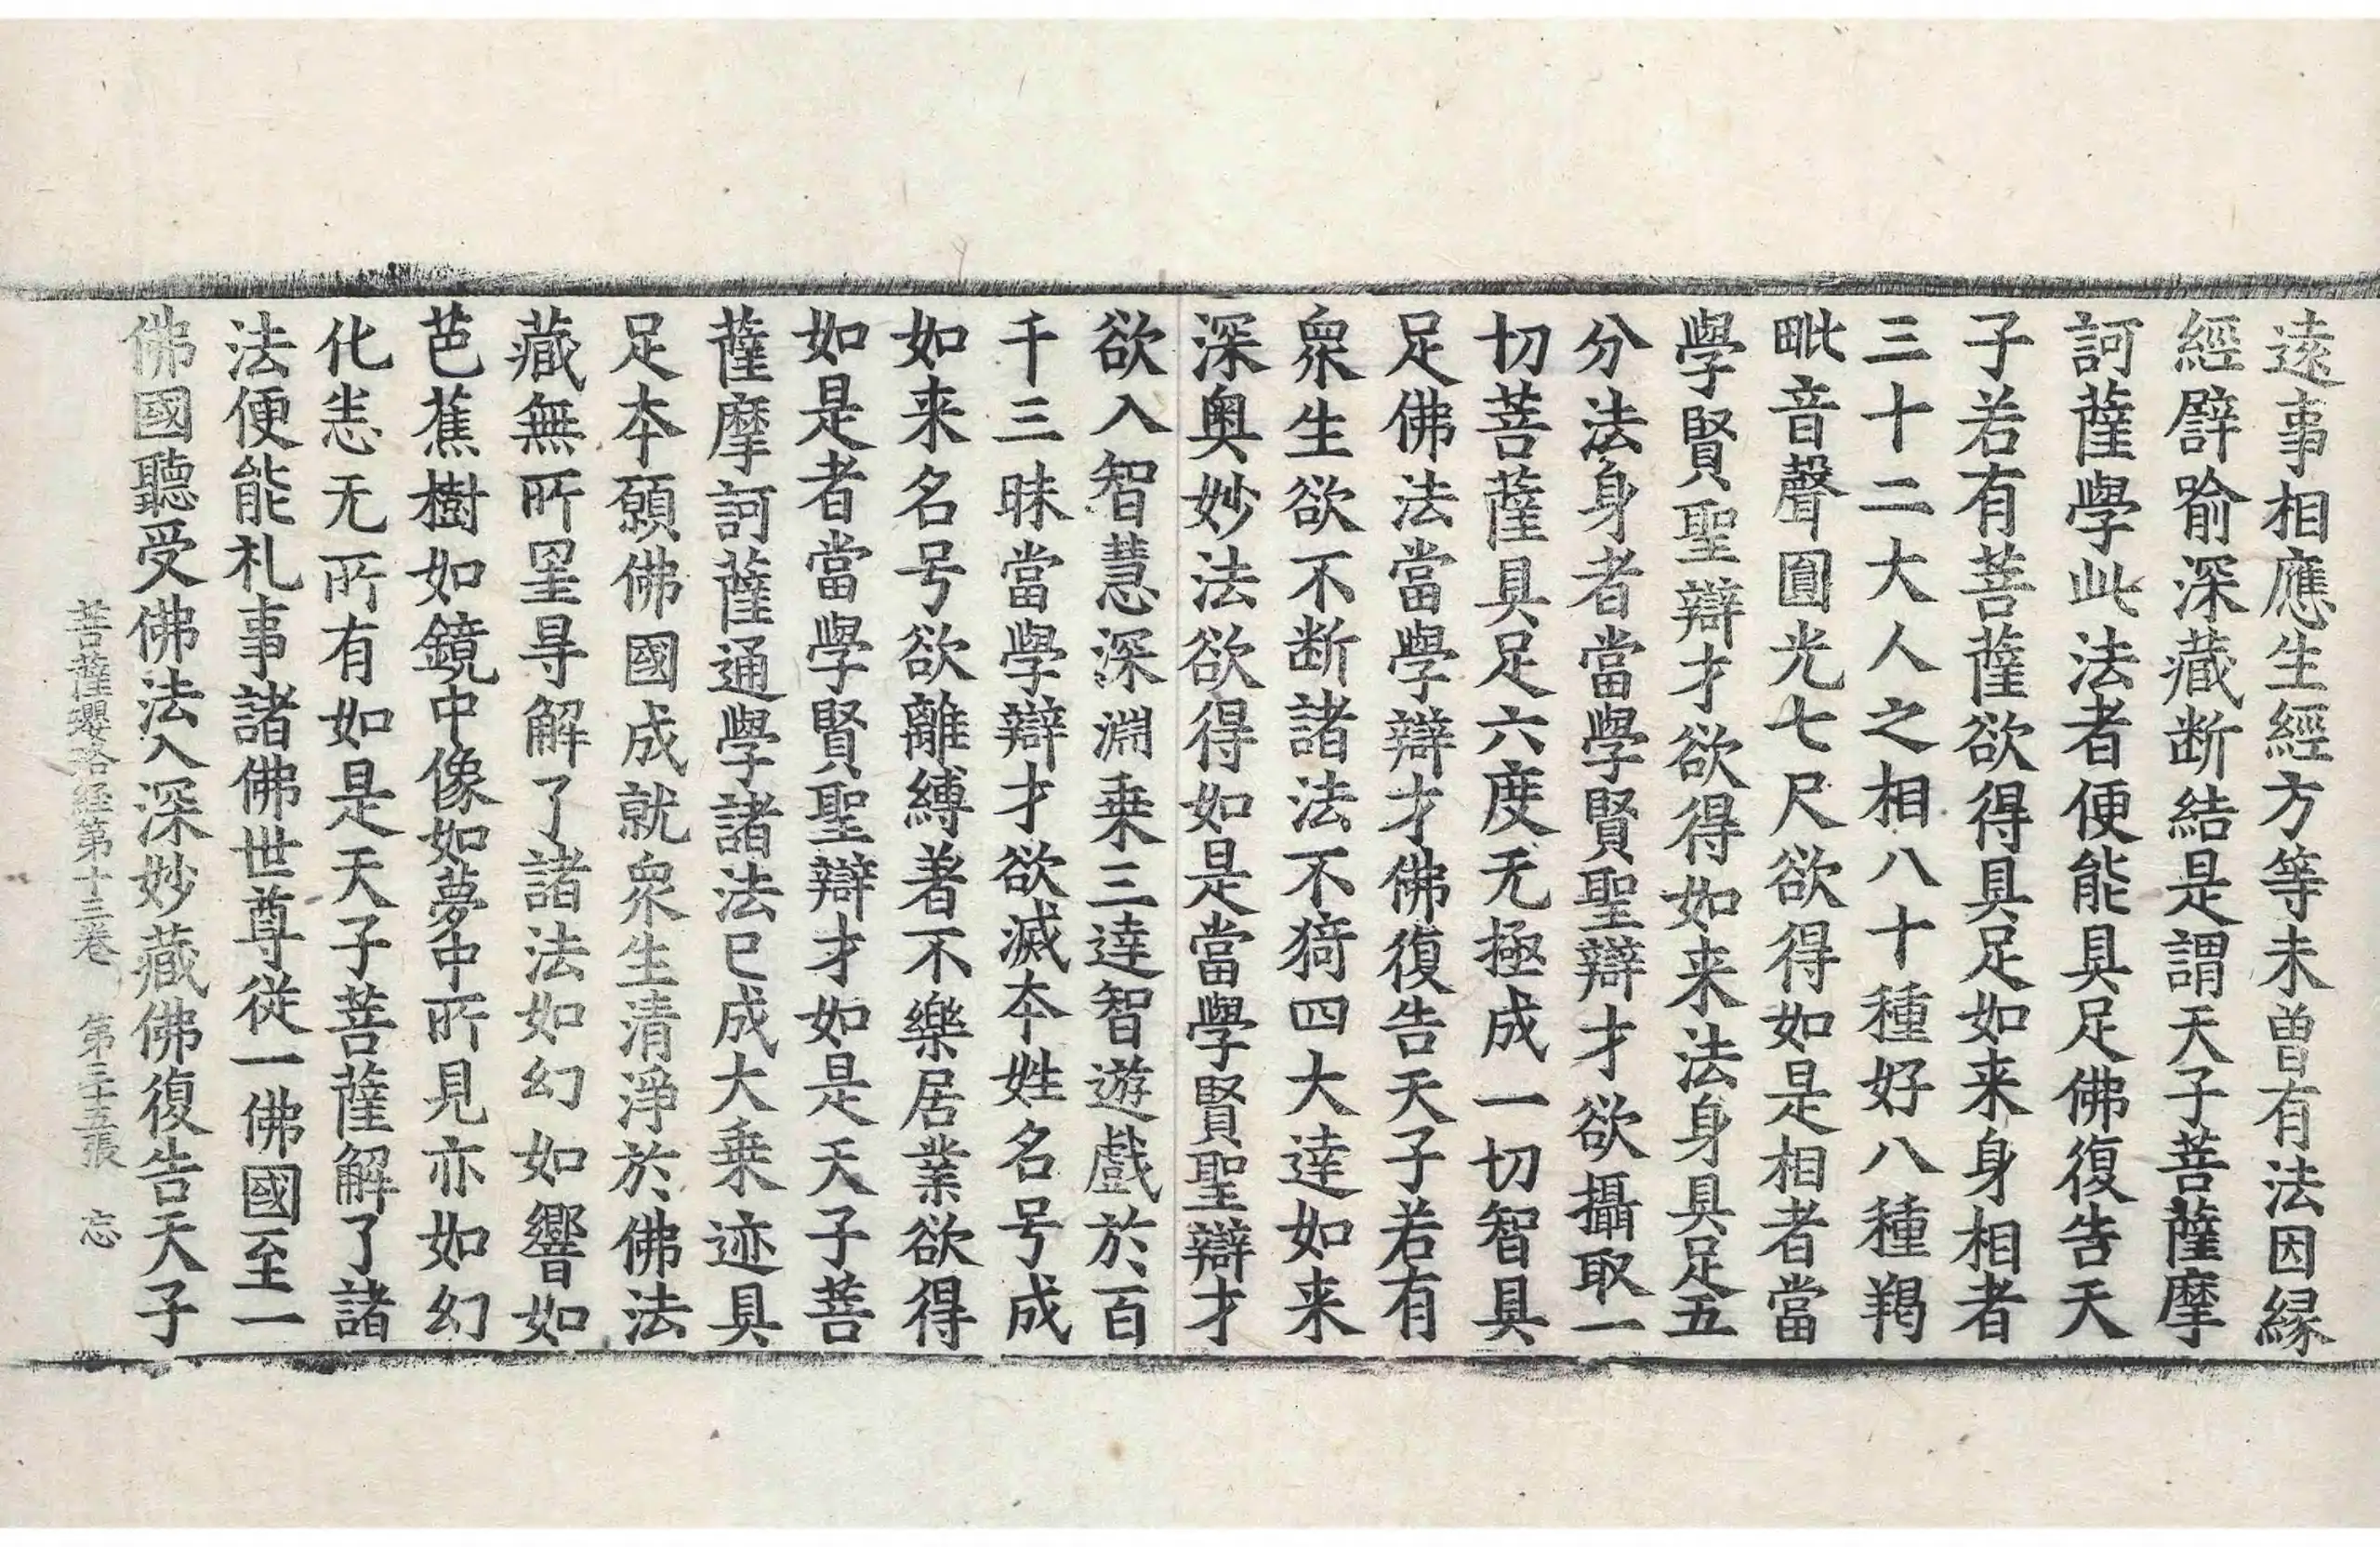 遠事相應生經方等未曾有法因縁
經譬喻深藏断結是謂天子菩薩摩
訶薩學此法者便能具足佛復告天
子若有菩薩欲得具足如来身相者
三十二大人之相八十種好八種羯
毗音聲圓光七尺欲得如是相者當
學賢聖辯才欲得如来法身具足五
分法身者當學賢聖辯才欲攝取一
切菩薩具足六度无極成一切智具
足佛法當學辯才佛復告天子若有
衆生欲不断諸法不猗四大達如来
深奥妙法欲得如是當學賢聖辯才
欲入智慧深淵乗三達智遊戲於百
千三昧當學辯才欲滅夲姓名号成
如来名号欲離縛著不樂居業欲得
如是者當學賢聖辯才如是天子菩
薩摩訶薩通學諸法已成大乗迹具
足夲願佛國成就衆生清淨於佛法
藏無所罣㝵解了諸法如幻如響如
芭蕉樹如鏡中像如夢中所見亦如幻
化恙无所有如是天子菩薩解了諸
法便能札事諸佛世尊従一佛國至一
佛國聽受佛法入深妙藏佛復告天子
菩薩瓔珞経第十三巻 第三十五張 忘